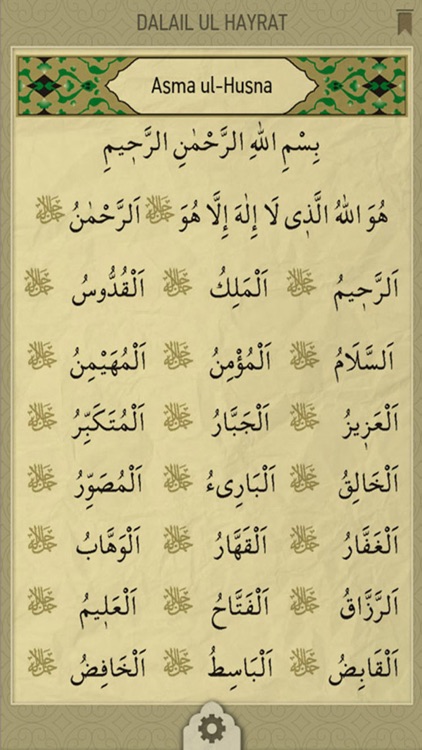 DALAIL UL HAYRAT
Asma ul-Husna
بِسْمِ اللهِ الرَّحْمٰنِ الرَّح۪يمِ
هُوَ اللهُ الَّذ۪ى لَا إِلٰهَ إِلَّا هُوَ ﷻ اَلرَّحْمٰنُ ﷻ
اَلرَّح۪يمُ ﷻ اَلْمَلِكُ ﷻ اَلْقُدُّوسُ ﷻ
اَلسَّلَامُ ﷻ اَلْمُؤْمِنُ ﷻ اَلْمُهَيْمِنُ ﷻ
اَلْعَز۪يزُ ﷻ اَلْجَبَّارُ ﷻ اَلْمُتَكَبِّرُ ﷻ
اَلْخَالِقُ ﷻ اَلْبَارِىءُ ﷻ اَلْمُصَوِّرُ ﷻ
اَلْغَفَّارُ ﷻ اَلْقَهَّارُ ﷻ اَلْوَهَّابُ ﷻ
اَلرَّزَّاقُ ﷻ اَلْفَتَّاحُ ﷻ اَلْعَل۪يمُ ﷻ
اَلْقَابِضُ ﷻ اَلْبَاسِطُ ﷻ اَلْخَافِضُ ﷻ